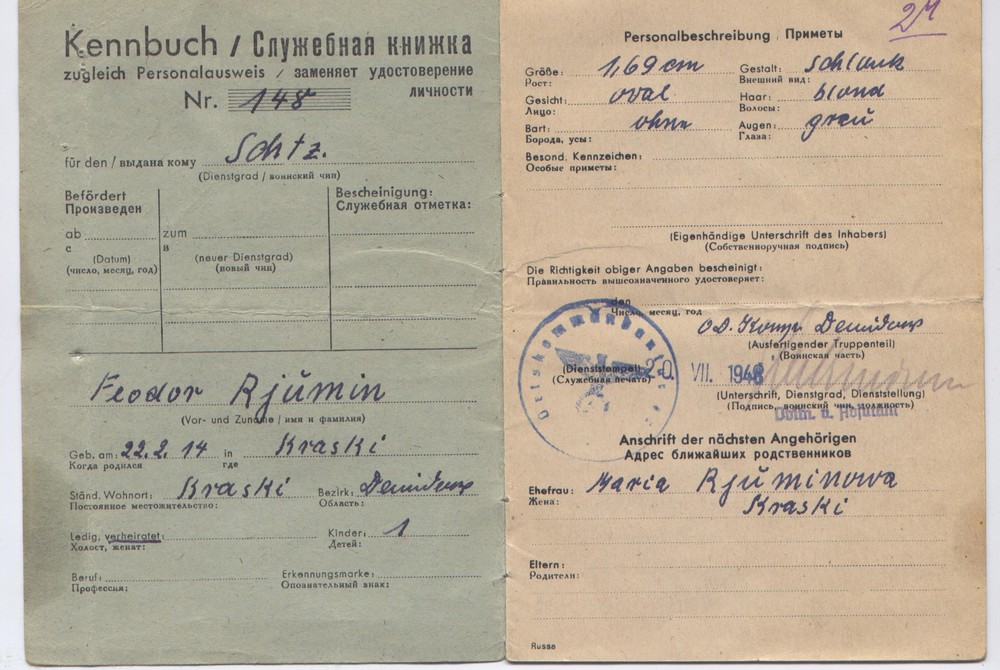 Kennbuch / Служебная книжка
zugleich Personalausweis / заменяет удостоверение
личности
Nr. 148
für den / выдана кому Schtz.
(Dienstgrad / воинский чин)
Befördert
Произведен
Bescheinigung:
Служебная отметка:
ab
с
zum
в
(Datum)
(число, месяц, год)
(neuer Dienstgrad)
(новый чин)
Feodor Rjümin
(Vor- und Zuname / имя и фамилия)
Geb. am: 22.2.14 in Kraski
Когда родился где
Ständ. Wohnort: Kraski Bezirk: Demidow
Постоянное местожительство: Область:
Ledig, verheiratet: Kinder: 1
Холост, женат: Детей:
Beruf: Erkennungsmarke:
Профессия: Опознавательный знак:
Personalbeschreibung / Приметы
Größe: 1,69 cm Gestalt: schlank
Рост: Внешний вид:
Gesicht: oval Haar: blond
Лицо: Волосы:
Bart: ohne Augen: grau
Борода, усы: Глаза:
Besond. Kennzeichen:
Особые приметы:
(Eigenhändige Unterschrift des Inhabers)
(Собственноручная подпись)
Die Richtigkeit obiger Angaben bescheinigt:
Правильность вышеозначенного удостоверяет:
den
Число, месяц, год
Demidow
(Ausfertigender Truppenteil)
(Воинская часть)
Ortskommandantur
(Dienststempel)
(Служебная печать)
20. VII. 194
(Unterschrift, Dienstgrad, Dienststellung)
(Подпись, воинский чин, должность)
Anschrift der nächsten Angehörigen
Адрес ближайших родственников
Ehefrau: Maria Rjuminowa
Жена: Kraski
Eltern:
Родители:
Russe